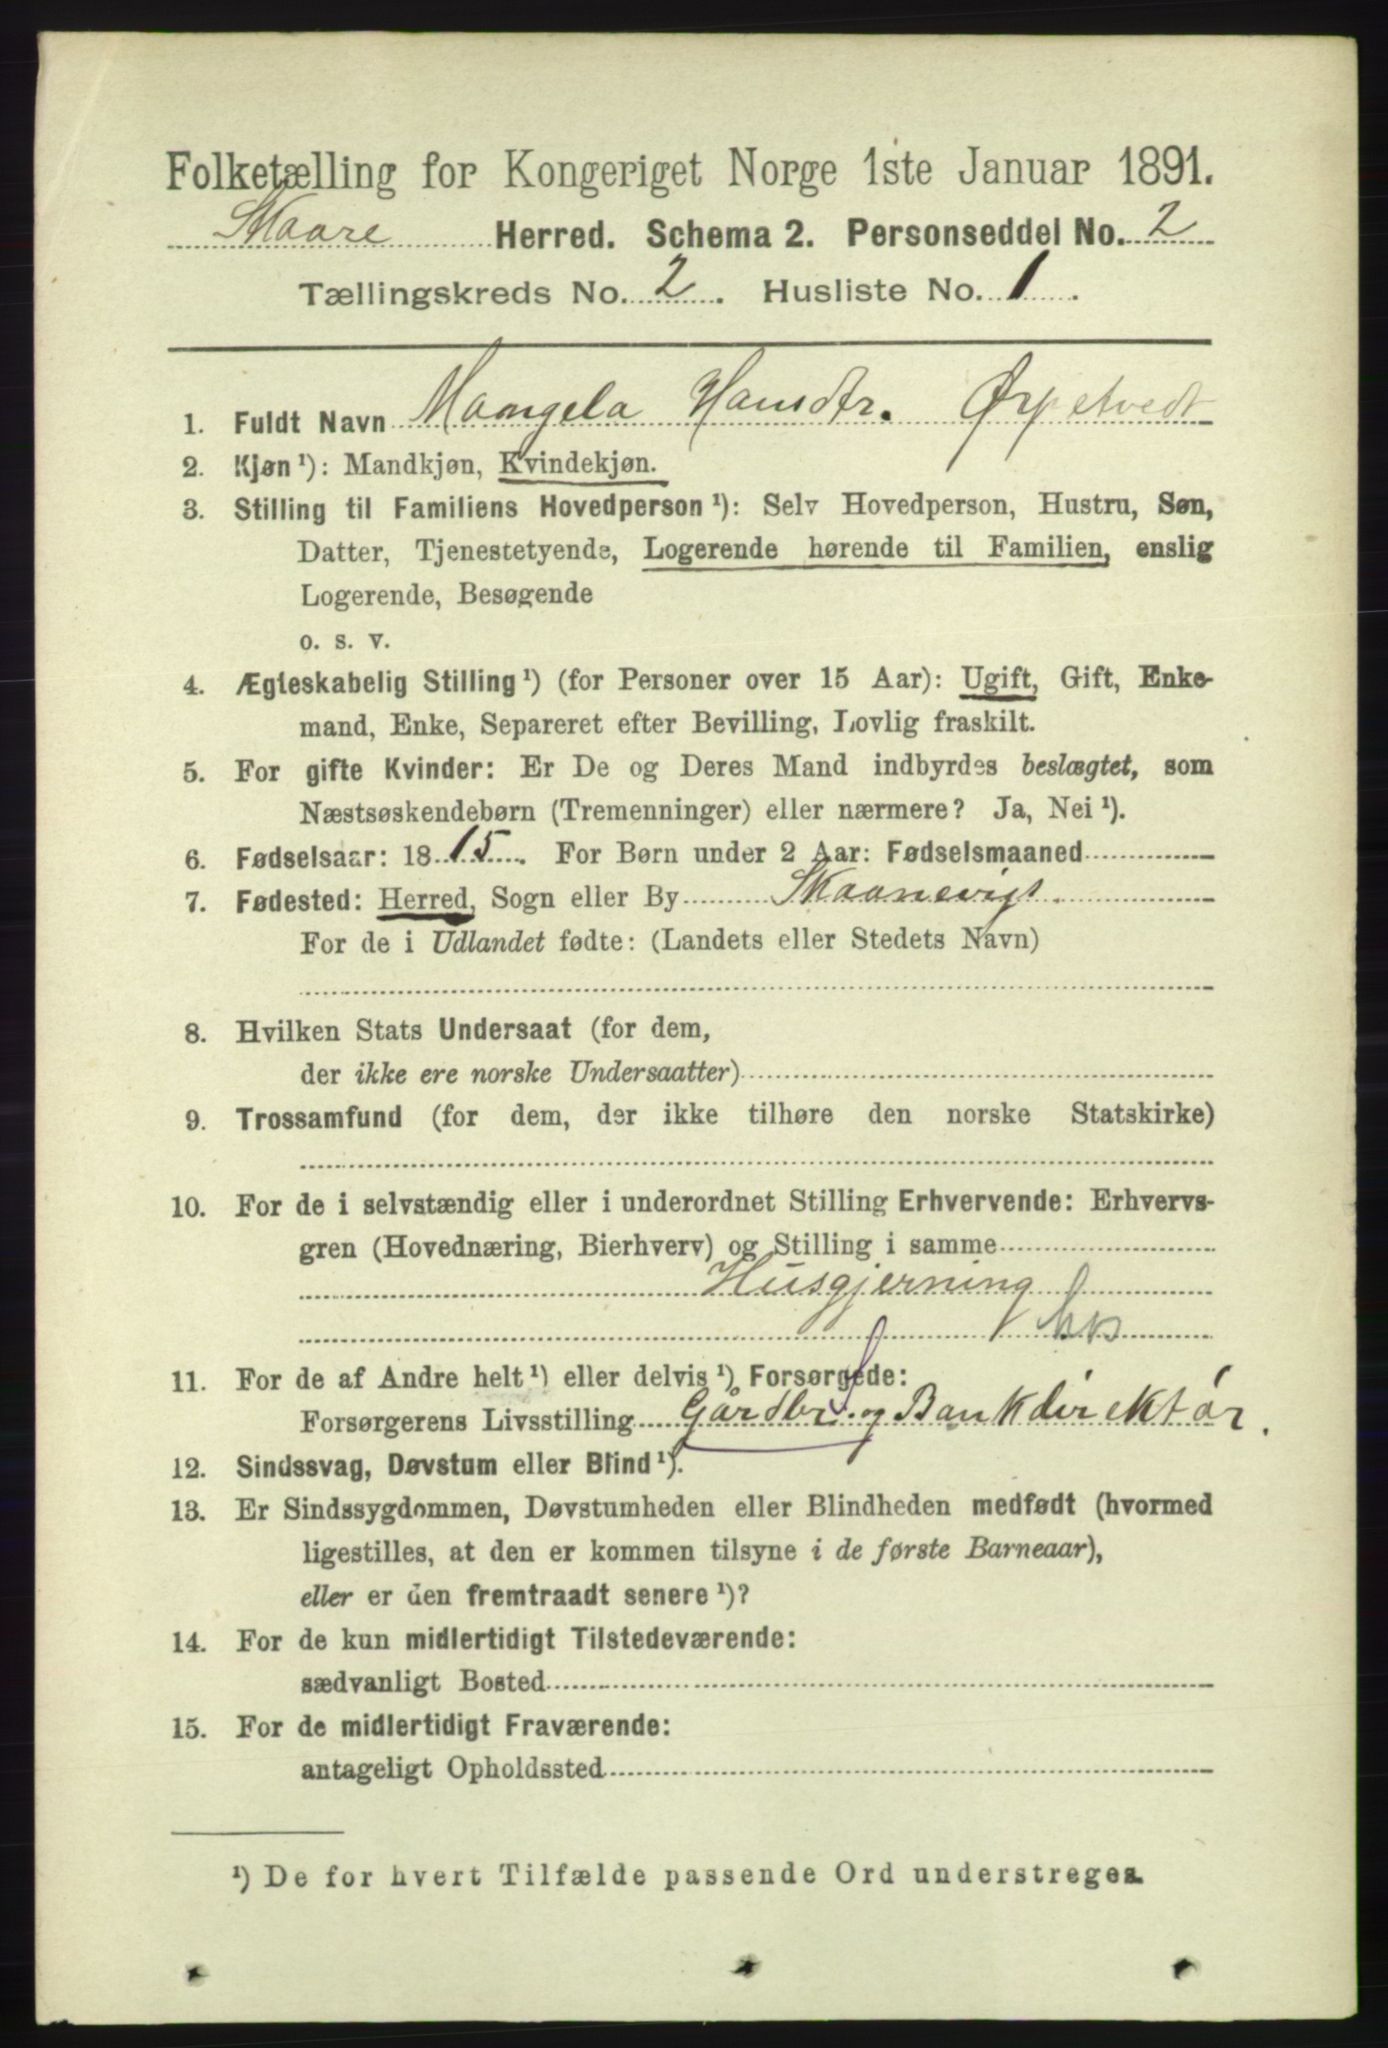 Folketælling for Kongeriget Norge 1ste Januar 1891.
Skaare Herred. Schema 2. Personseddel No. 2
Tællingskreds No. 2. Husliste No. 1.
1. Fuldt Navn Mangela Hansdtr. Ørpetvedt
2. Kjøn ¹): Mandkjøn, Kvindekjøn.
3. Stilling til Familiens Hovedperson ¹): Selv Hovedperson, Hustru, Søn,
Datter, Tjenestetyende, Logerende hørende til Familien, enslig
Logerende, Besøgende
o. s. v.
4. Ægteskabelig Stilling ¹) (for Personer over 15 Aar): Ugift, Gift, Enke-
mand, Enke, Separeret efter Bevilling, Lovlig fraskilt.
5. For gifte Kvinder: Er De og Deres Mand indbyrdes beslægtet, som
Næstsøskendebørn (Tremenninger) eller nærmere? Ja, Nei ¹).
6. Fødselsaar: 1815. For Børn under 2 Aar: Fødselsmaaned
7. Fødested: Herred, Sogn eller By Skaanevigt.
For de i Udlandet fødte: (Landets eller Stedets Navn)
8. Hvilken Stats Undersaat (for dem,
der ikke ere norske Undersaatter)
9. Trossamfund (for dem, der ikke tilhøre den norske Statskirke)
10. For de i selvstændig eller i underordnet Stilling Erhvervende: Erhvervs-
gren (Hovednæring, Bierhverv) og Stilling i samme
Husgjerning
11. For de af Andre helt ¹) eller delvis ¹) Forsørgede:
Forsørgerens Livsstilling Gårdbr. og Bankdirektør.
12. Sindssvag, Døvstum eller Blind ¹).
13. Er Sindssygdommen, Døvstumheden eller Blindheden medfødt (hvormed
ligestilles, at den er kommen tilsyne i de første Barneaar),
eller er den fremtraadt senere ¹)?
14. For de kun midlertidigt Tilstedeværende:
sædvanligt Bosted
15. For de midlertidigt Fraværende:
antageligt Opholdssted
¹) De for hvert Tilfælde passende Ord understreges.